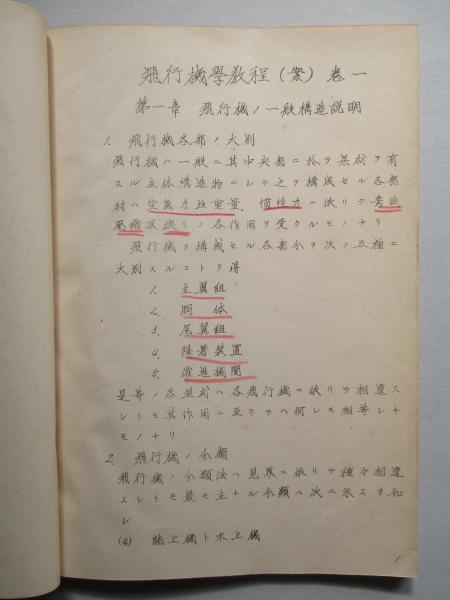 飛行機學教程(案) 卷一
第一章 飛行機ノ一般構造説明
1. 飛行機各部ノ大別
飛行機ハ一般ニ其中央部ニ於テ架材ヲ有
スル立体構造物ニシテ之ヲ構成セル各部
材ハ空氣力並重量、慣性力ニ依リテ弯曲
壓縮及捩リノ各作用ヲ受クルモノナリ
飛行機ヲ構成セル各部分ヲ次ノ五種ニ
大別スルコトヲ得
1. 主翼組
2. 胴体
3. 尾翼組
4. 降着装置
5. 推進機関
是等ノ各型式ハ各飛行機ニ依リテ相違ス
レトモ其作用ニ至リテハ何レモ相等シキ
モノナリ
2. 飛行機ノ分類
飛行機ノ分類法ハ見界ニ依リテ種々相違
スレトモ最モ主ナル分類ハ次ニ示スオ如
シ
(イ) 陸上機ト水上機